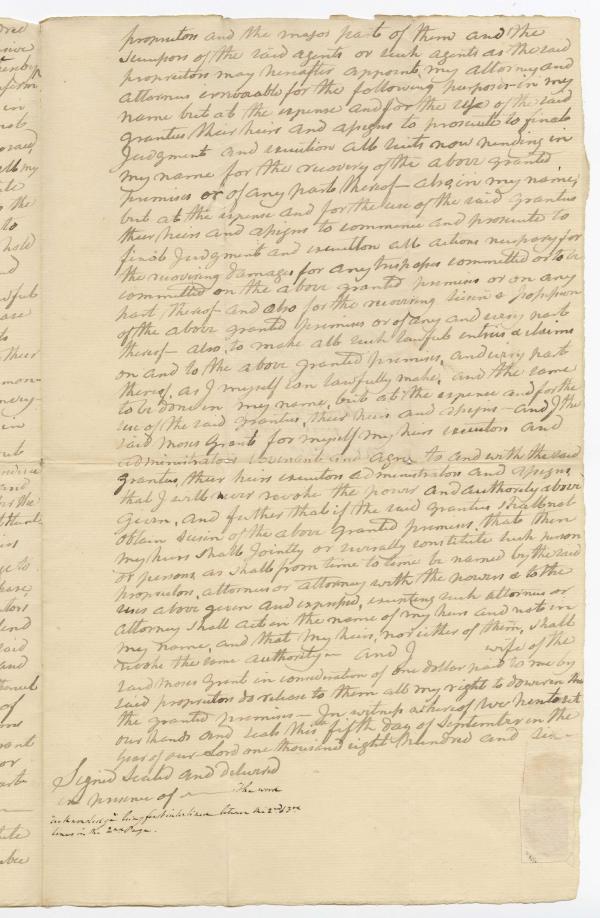 proprietors and the major part of them and the
survivors of the said agents or such agents as the said
proprietors may hereafter appoint, my attorney and
attornies irrevocable for the following purposes in my
name but at the expense and for the use of the said
grantees their heirs and assigns to prosecute to final
Judgment and execution all suits now pending in
my name for the recovery of the above granted
premises or of any part thereof – also in my name,
but at the expense and for the use of the said grantees
their heirs and assigns to commence and prosecute to
final Judgment and execution all actions necessary for
the recovering damages for any trespasses committed or to be
committed on the above granted premises or on any
part thereof and also for the recovering seisin & possession
of the above granted premises or of any and every part
thereof – also, to make all such lawful entries & claims
on and to the above granted premises, and every part
thereof, as I myself can lawfully make, and the same
to be done in my name, but at the expense and for the
use of the said grantees, their heirs and assigns – and I the
said Moses Grant for myself my heirs executors and
administrators covenant and agree to and with the said
grantees, their heirs executors administrators and assigns
that I will never revoke the power and authority above
given, and further that if the said grantees shall not
obtain seisin of the above granted premises, that then
my heirs shall Jointly or severally constitute such person
or persons, as shall from time to time be named by the said
proprietors, attornies or attorney with the powers & to the
uses above given and expressed, excepting such attornies or
attorney shall act in the name of my heirs and not in
my name, and that my heirs, nor either of them, shall
revoke the same authority – and I wife of the
said Moses Grant in consideration of one dollar paid to me by
said proprietors do release to them all my right to dower in the
the granted premises – In witness whereof we hereunto set
our hands and seals this fifth day of September in the
year of our Lord one thousand eight hundred and six –
Signed sealed and delivered
in presence of – The word
being first interlined between the 2nd & 3rd
lines in the 2nd page.